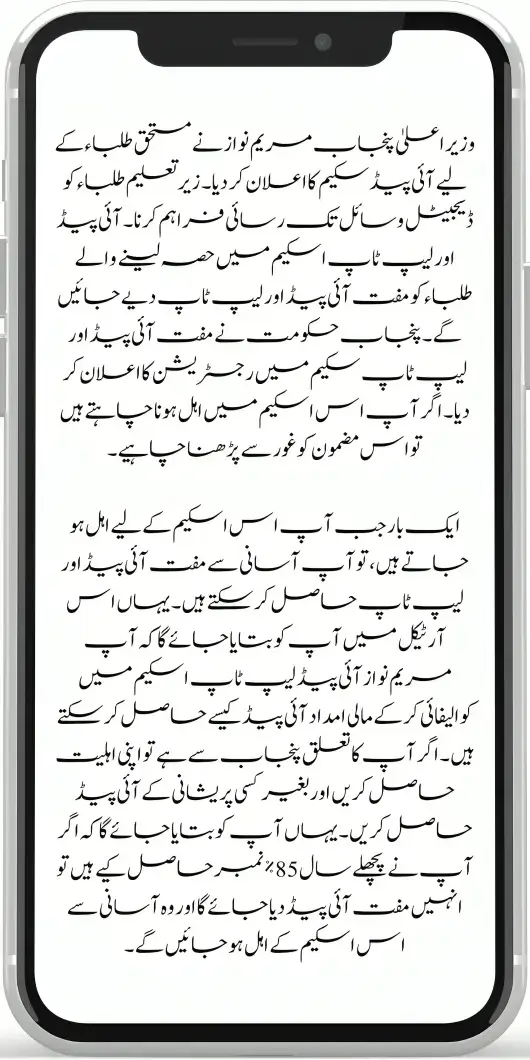 وزیر اعلیٰ پنجاب مریم نواز نے مستحق طلباء کے
لیے آئی پیڈ سکیم کا اعلان کر دیا۔ زیر تعلیم طلباء کو
ڈیجیٹل وسائل تک رسائی فراہم کرنا۔ آئی پیڈ
اور لیپ ٹاپ اسکیم میں حصہ لینے والے
طلباء کو مفت آئی پیڈ اور لیپ ٹاپ دیے جائیں
گے۔ پنجاب حکومت نے مفت آئی پیڈ اور
لیپ ٹاپ سکیم میں رجسٹریشن کا اعلان کر
دیا۔ اگر آپ اس اسکیم میں اہل ہونا چاہتے ہیں
تو اس مضمون کو غور سے پڑھنا چاہیے۔
ایک بار جب آپ اس اسکیم کے لیے اہل ہو
جاتے ہیں، تو آپ آسانی سے مفت آئی پیڈ اور
لیپ ٹاپ حاصل کر سکتے ہیں۔ یہاں اس
آرٹیکل میں آپ کو بتایا جائے گا کہ آپ
مریم نواز آئی پیڈ لیپ ٹاپ اسکیم میں
کوالیفائی کر کے مالی امداد آئی پیڈ کیسے حاصل کر سکتے
ہیں۔ اگر آپ کا تعلق پنجاب سے ہے تو اپنی اہلیت
حاصل کریں اور بغیر کسی پریشانی کے آئی پیڈ
حاصل کریں۔ یہاں آپ کو بتایا جائے گا کہ اگر
آپ نے پچھلے سال 85٪ نمبر حاصل کیے ہیں تو
انہیں مفت آئی پیڈ دیا جائے گا اور وہ آسانی سے
اس اسکیم کے اہل ہو جائیں گے۔